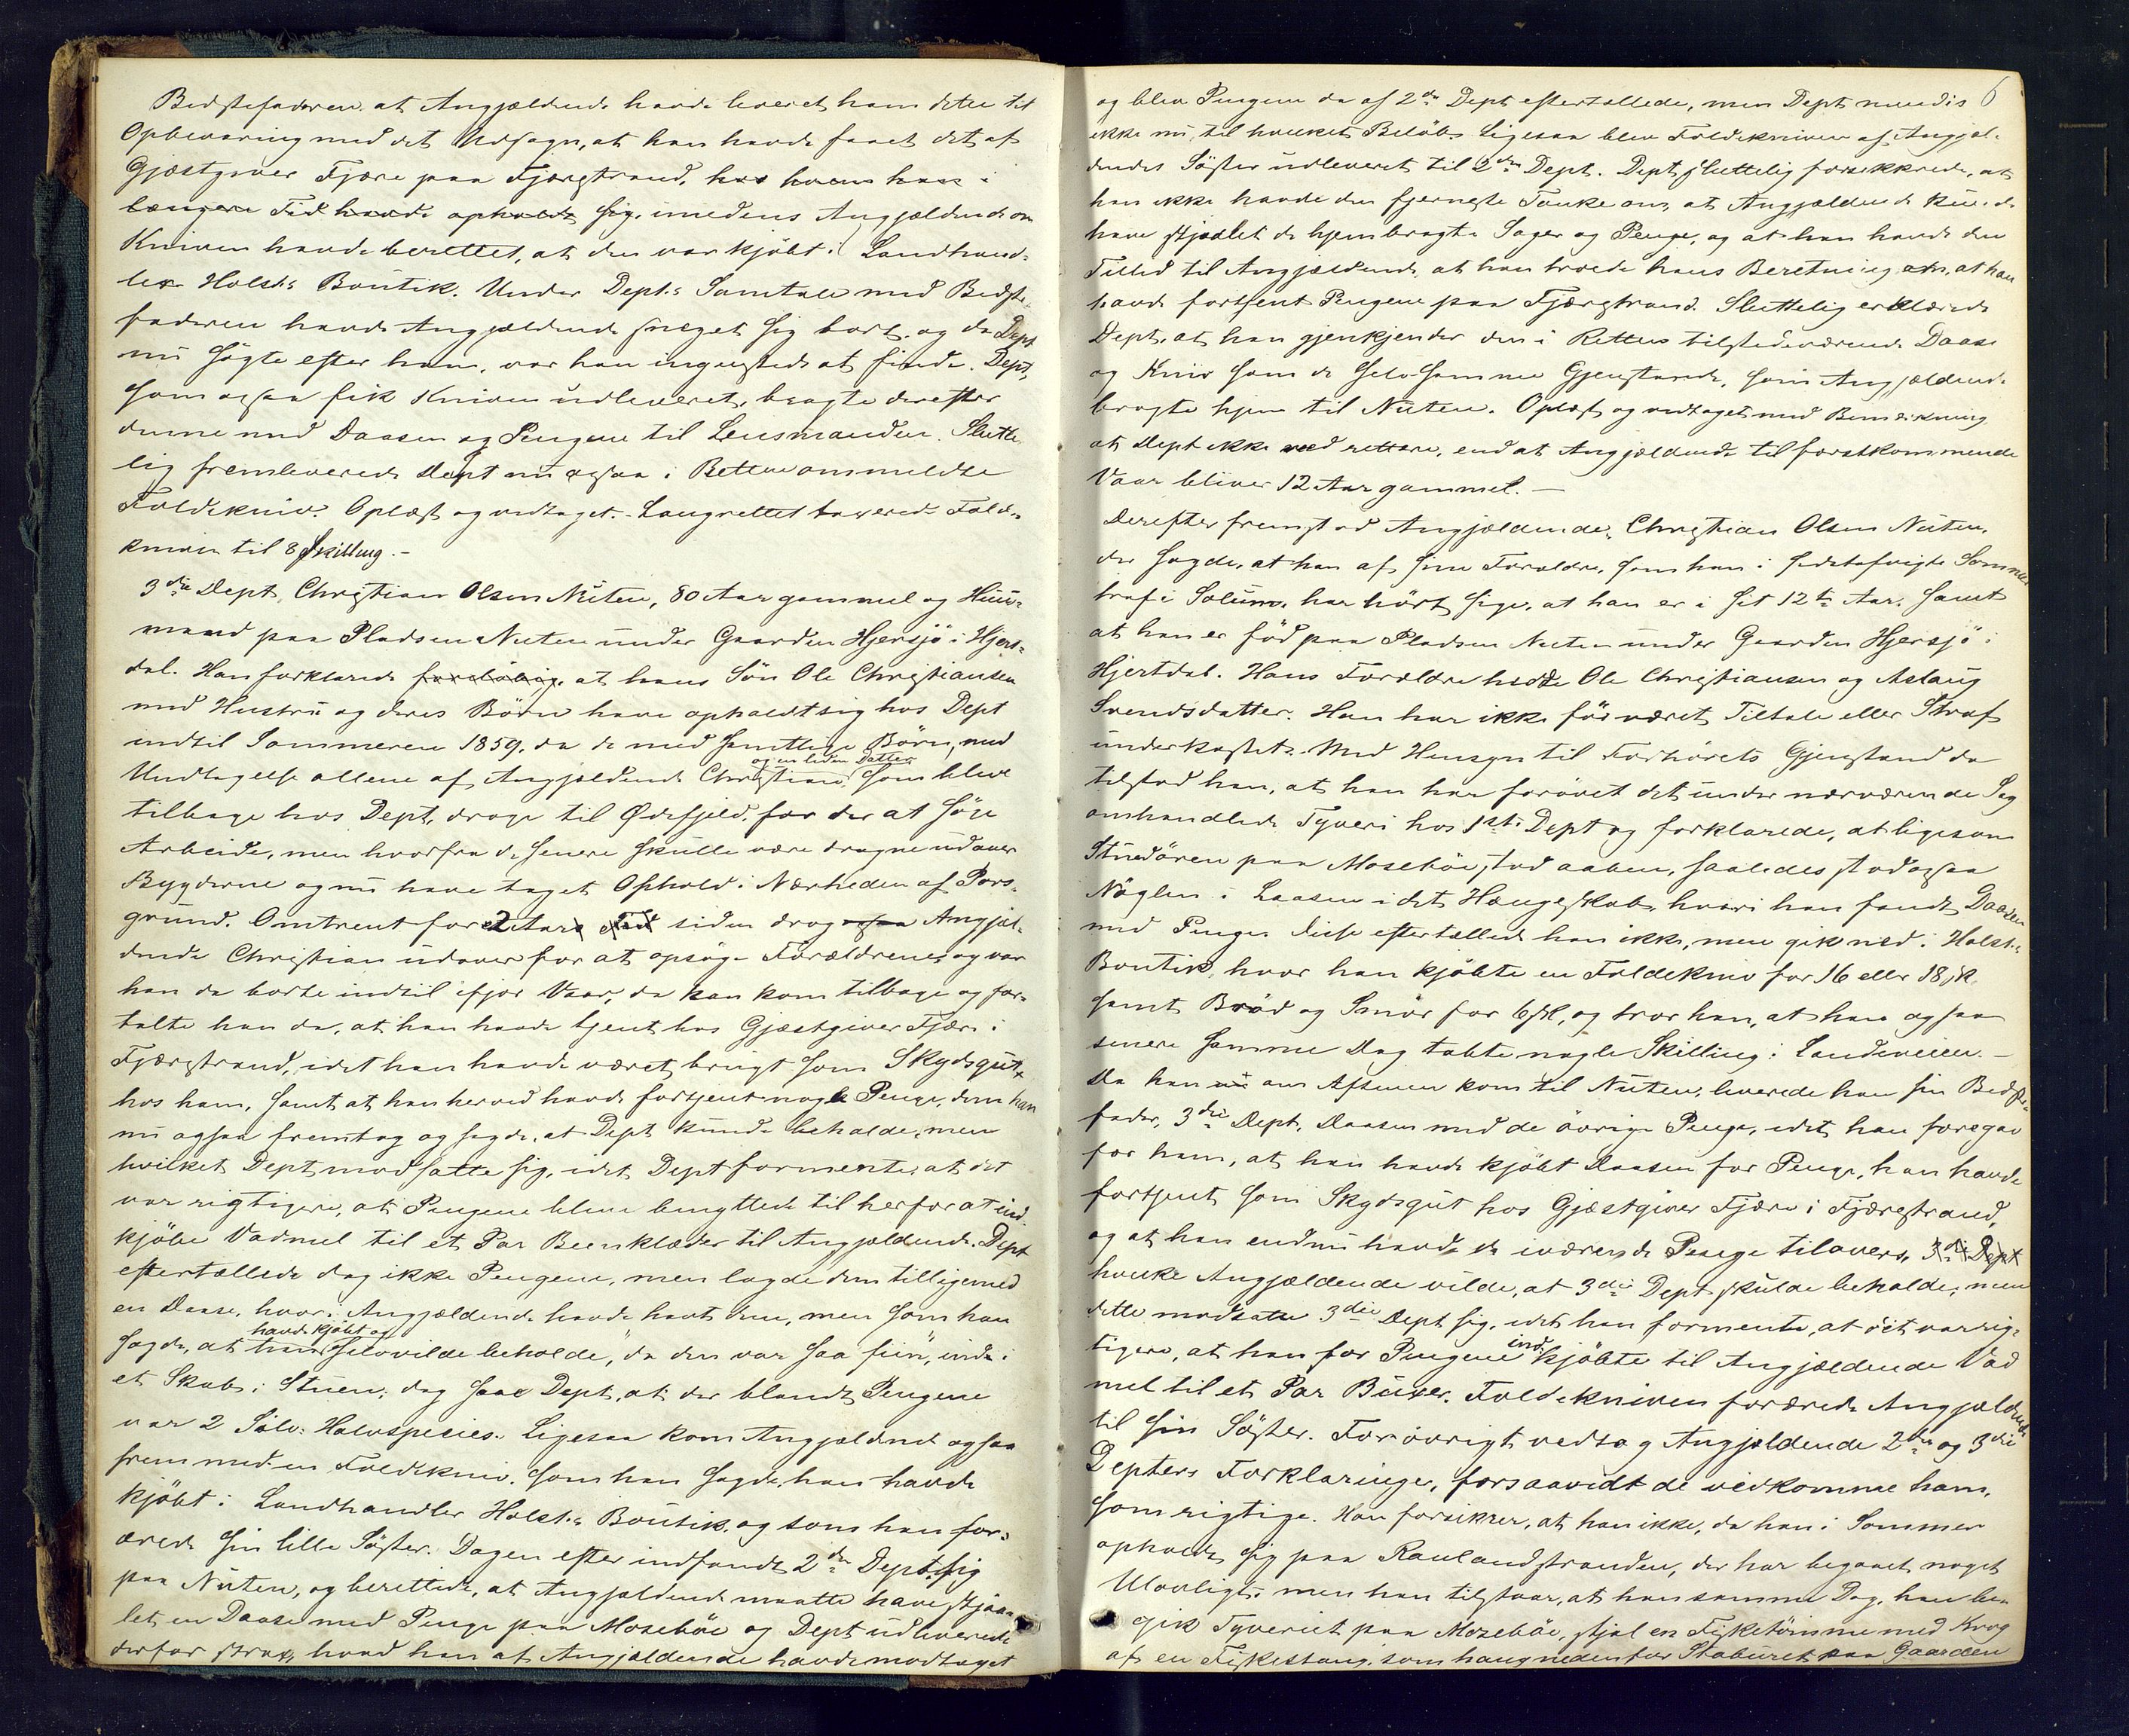 Bedstefaderen at Angjældende havde leveret ham dette til
Opbevaring med det Udsagn, at han havde faaet det af
Gjæstgiver Fjære paa Fjærestrand, hos hvem han i
længere Tid havde opholdt sig, imedens Angjældende om
Kniven havde berettet, at den var kjöbt i Landhand-
ler Holsts Boutik. Under Depts Samtale med Bedste-
faderen havde Angjældende sneget sig bort, og da Dept
nu sögte efter ham, var han ingensteds at finde. Dept,
som ogsaa fik Kniven udleveret, bragte derefter
denne med Daasen og Pengene til Lensmanden. Slutte-
lig fremleverede Dept nu ogsaa i Retten ommeldte
Foldekniv. Oplæst og vedtaget. Laugrettet taxerede Folde-
kniven til 8 Skilling.-
3die Dept, Christian Olsen Nuten, 80 Aar gammel og Huus-
mand paa Pladsen Nuten under Gaarden Hjersjö i Hjert-
dal. Han forklarede foreløbig, at hans Sön Ole Christiansen
med Hustru og deres Börn have opholdt sig hos Dept
indtil Sommeren 1859, da de med samtlige Börn, med
og en liden Datter
Undtagelse allene af Angjældende Christian, som bleve
tilbage hos Dept, droge til Ødefjeld, for der at söge
Arbeide, men hvorfra de senere skulle være dragne udover
Bygderne og nu have taget Ophold i Nærheden af Pors-
grund. Omtrent for 2 Aar siden drog ogsaa Angjæl-
dende Christian udover for at opsöge Forældrene, og var
han da borte indtil ifjor Vaar, da han kom tilbage og for-
talte han da, at han havde tjent hos Gjæstgiver Fjære i
Fjærestrand, idet han havde været brugt som Skydsgut
hos ham, samt at han herved havde fortjent nogle Penge, dem han
nu ogsaa fremtog og sagde, at Dept kunde beholde, men
hvilket Dept modsatte sig, idet Dept formente, at det
var rigtigere, at Pengene bleve benyttede til herfor at ind-
kjöbe Vadmel til et Par Beenklæder til Angjældende. Dept
eftertællede dog ikke Pengene, men lagde dem tilligemed
en Daase, hvori Angjældende havde havt dem, men som han
havde kjöbt og
sagde, at han selv vilde beholde, "da den var saa fiin", inde i
et Skab i Stuen; dog saae Dept, at der blandt Pengene
var 2 Sölv-Halvspecies. Ligesaa kom Angjældende ogsaa
frem med en Foldekniv, som han sagde, han havde
kjöbt i Landhandler Holsts Boutik, og som han for-
ærede sin lille Söster. Dagen efter indfandt 2den Dept sig
paa Nuten, og berettede, at Angjældende maatte have stjaa-
let en Daase med Penge paa Moseböe og Dept udleverede
derfor strax, hvad han af Angjældende havde modtaget
6
og blev Pengene da af 2den Dept eftertællede, men Dept mindes
ikke nu, til hvilket Belöb. Ligesaa blev Foldekniven af Angjæl-
dendes Söster udleveret til 2den Dept. Dept sluttelig forsikkrede, at
han ikke havde den fjerneste Tanke om, at Angjældende kunde
have stjaalet de hjembragte Sager og Penge, og at han havde den
Tillid til Angjældende, at han troede hans Beretning om, at han
havde fortjent Pengene paa Fjærestrand. Sluttelig erklærede
Dept, at han gjenkjender den i Retten tilstedeværende Daase
og Kniv som de selvsamme Gjenstande, som Angjældende
bragte hjem til Nuten. Oplæst og vedtaget med Bemærkning
at Dept ikke ved rettere, end at Angjældende til forstkommende
Vaar bliver 12 Aar gammel.-
Derefter fremstod Angjældende, Christian Olsen Nuten,
der sagde, at han af sine Forældre, som han i sidstafvigte Sommer
traf i Solum, har hört sige, at han er i sit 12te Aar, samt
at han er född paa Pladsen Nuten under Gaarden Hjersjö i
Hjertdal. Hans Forældre hedde Ole Christiansen og Aslaug
Svendsdatter. Han har ikke för været Tiltale eller Straf
underkastet. Med Hensyn til Forhörets Gjenstand da
tilstod han, at han har forövet det under nærværende Sag
omhandlede Tyveri hos 1ste Dept og forklarede, at ligesom
Stuedören paa Moseböe stod aaben, saaledes stod ogsaa
Nöglen i Laasen i det Hængeskab, hvori han fandt Daasen
med Penge. Disse eftertællede han ikke, men gik ned i Holsts
Boutik, hvor han kjöbte en Foldekniv for 16 eller 18 sk,
samt Bröd og Smör for 6 sk, og tror han, at han ogsaa
senere samme Dag tabte nogle Skilling i Landeveien.-
Da han om Aftenen kom til Nuten, leverede han sin Bedste-
fader, 3die Dept, Daasen med de övrige Penge, idet han foregav
for ham, at han havde kjöbt Daasen for Penge, han havde
fortjent som Skydsgut hos Gjæstgiver Fjære i Fjærestrand,
og at han endnu havde de iværende Penge tilovers, 3die Dept
hvilke Angjældende vilde, at 3die Dept skulde beholde; men
dette modsatte 3die Dept sig, idet han formente, at det var rig-
ind
tigere, at han for Pengene kjöbte til Angjældende Vad
mel til et Par Buxer. Foldekniven forærede Angjældende
til sin Söster. Forövrigt vedtog Angjældende 2den og 3die
Depters Forklaringer, forsaavidt de vedkomme ham,
som rigtige. Han forsikrer, at han ikke, da han i Sommer
opholdt sig paa Raulandstranden, der har begaaet noget
Ulovligt, men han tilstaar, at han samme Dag, han be-
gik Tyveriet paa Moseböe, stjal en Fisketömme med Krog
af en Fiskestang, som hang nedenfor Staburet paa Gaarden